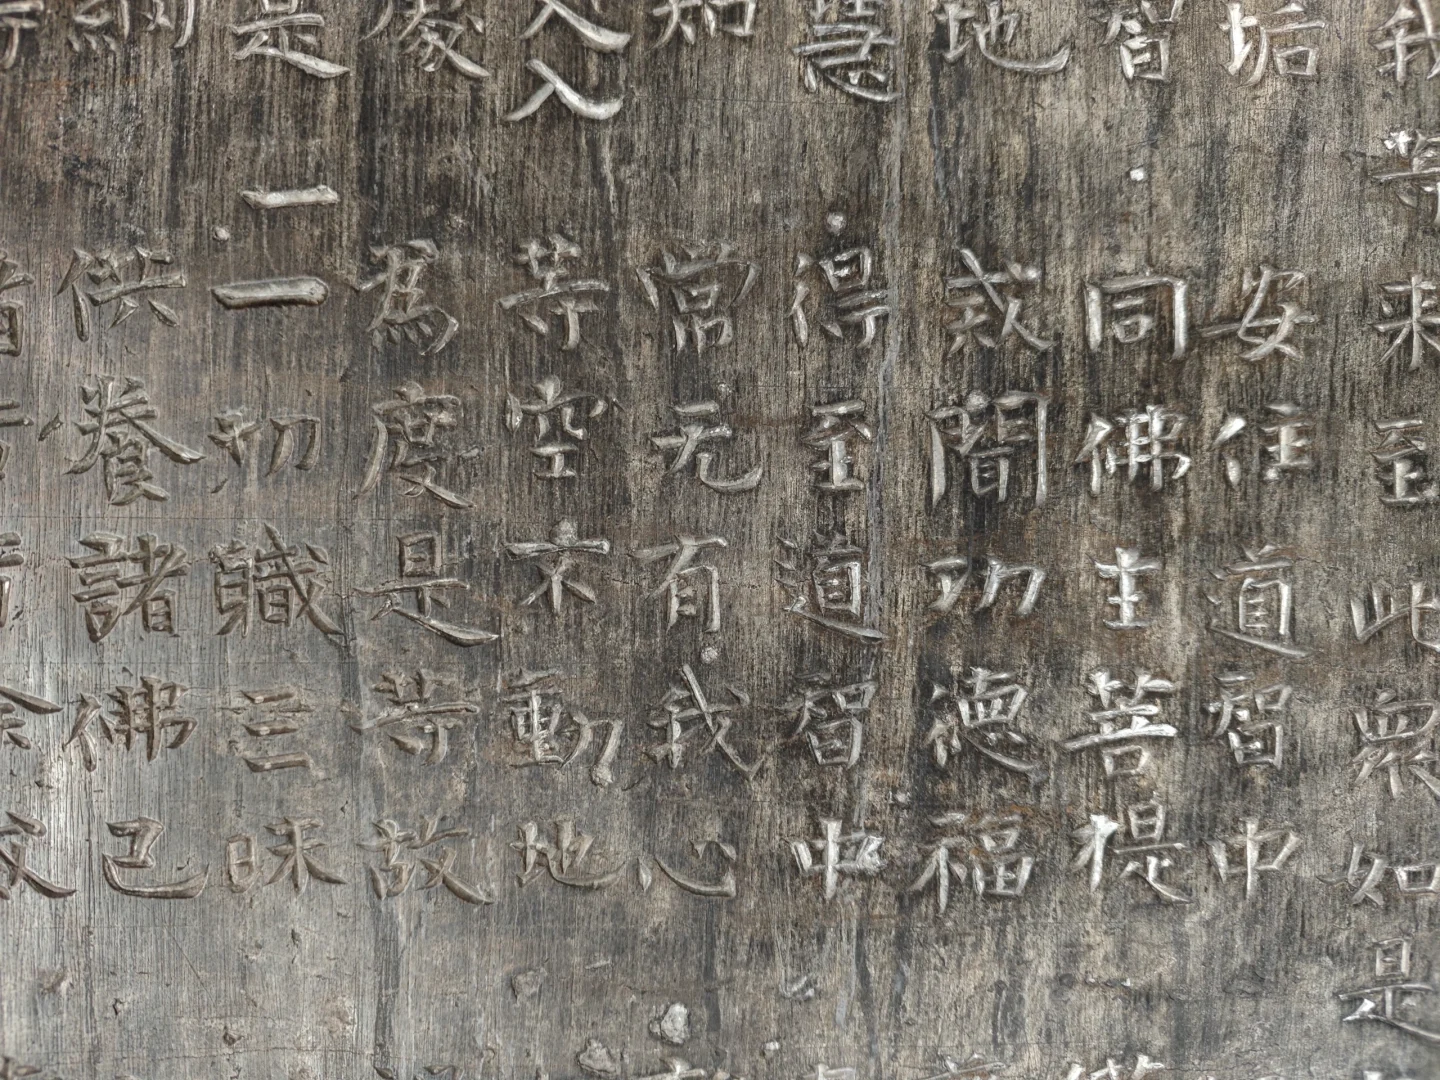 我等 来至此衆如是
垢 安住道智中
智 同佛主菩提
地 聞功德福
慧 得至道智中
知 當无有我心
入入 等空不動地
處 爲度是等故
是一 一切軄三昧
網 供養諸佛已